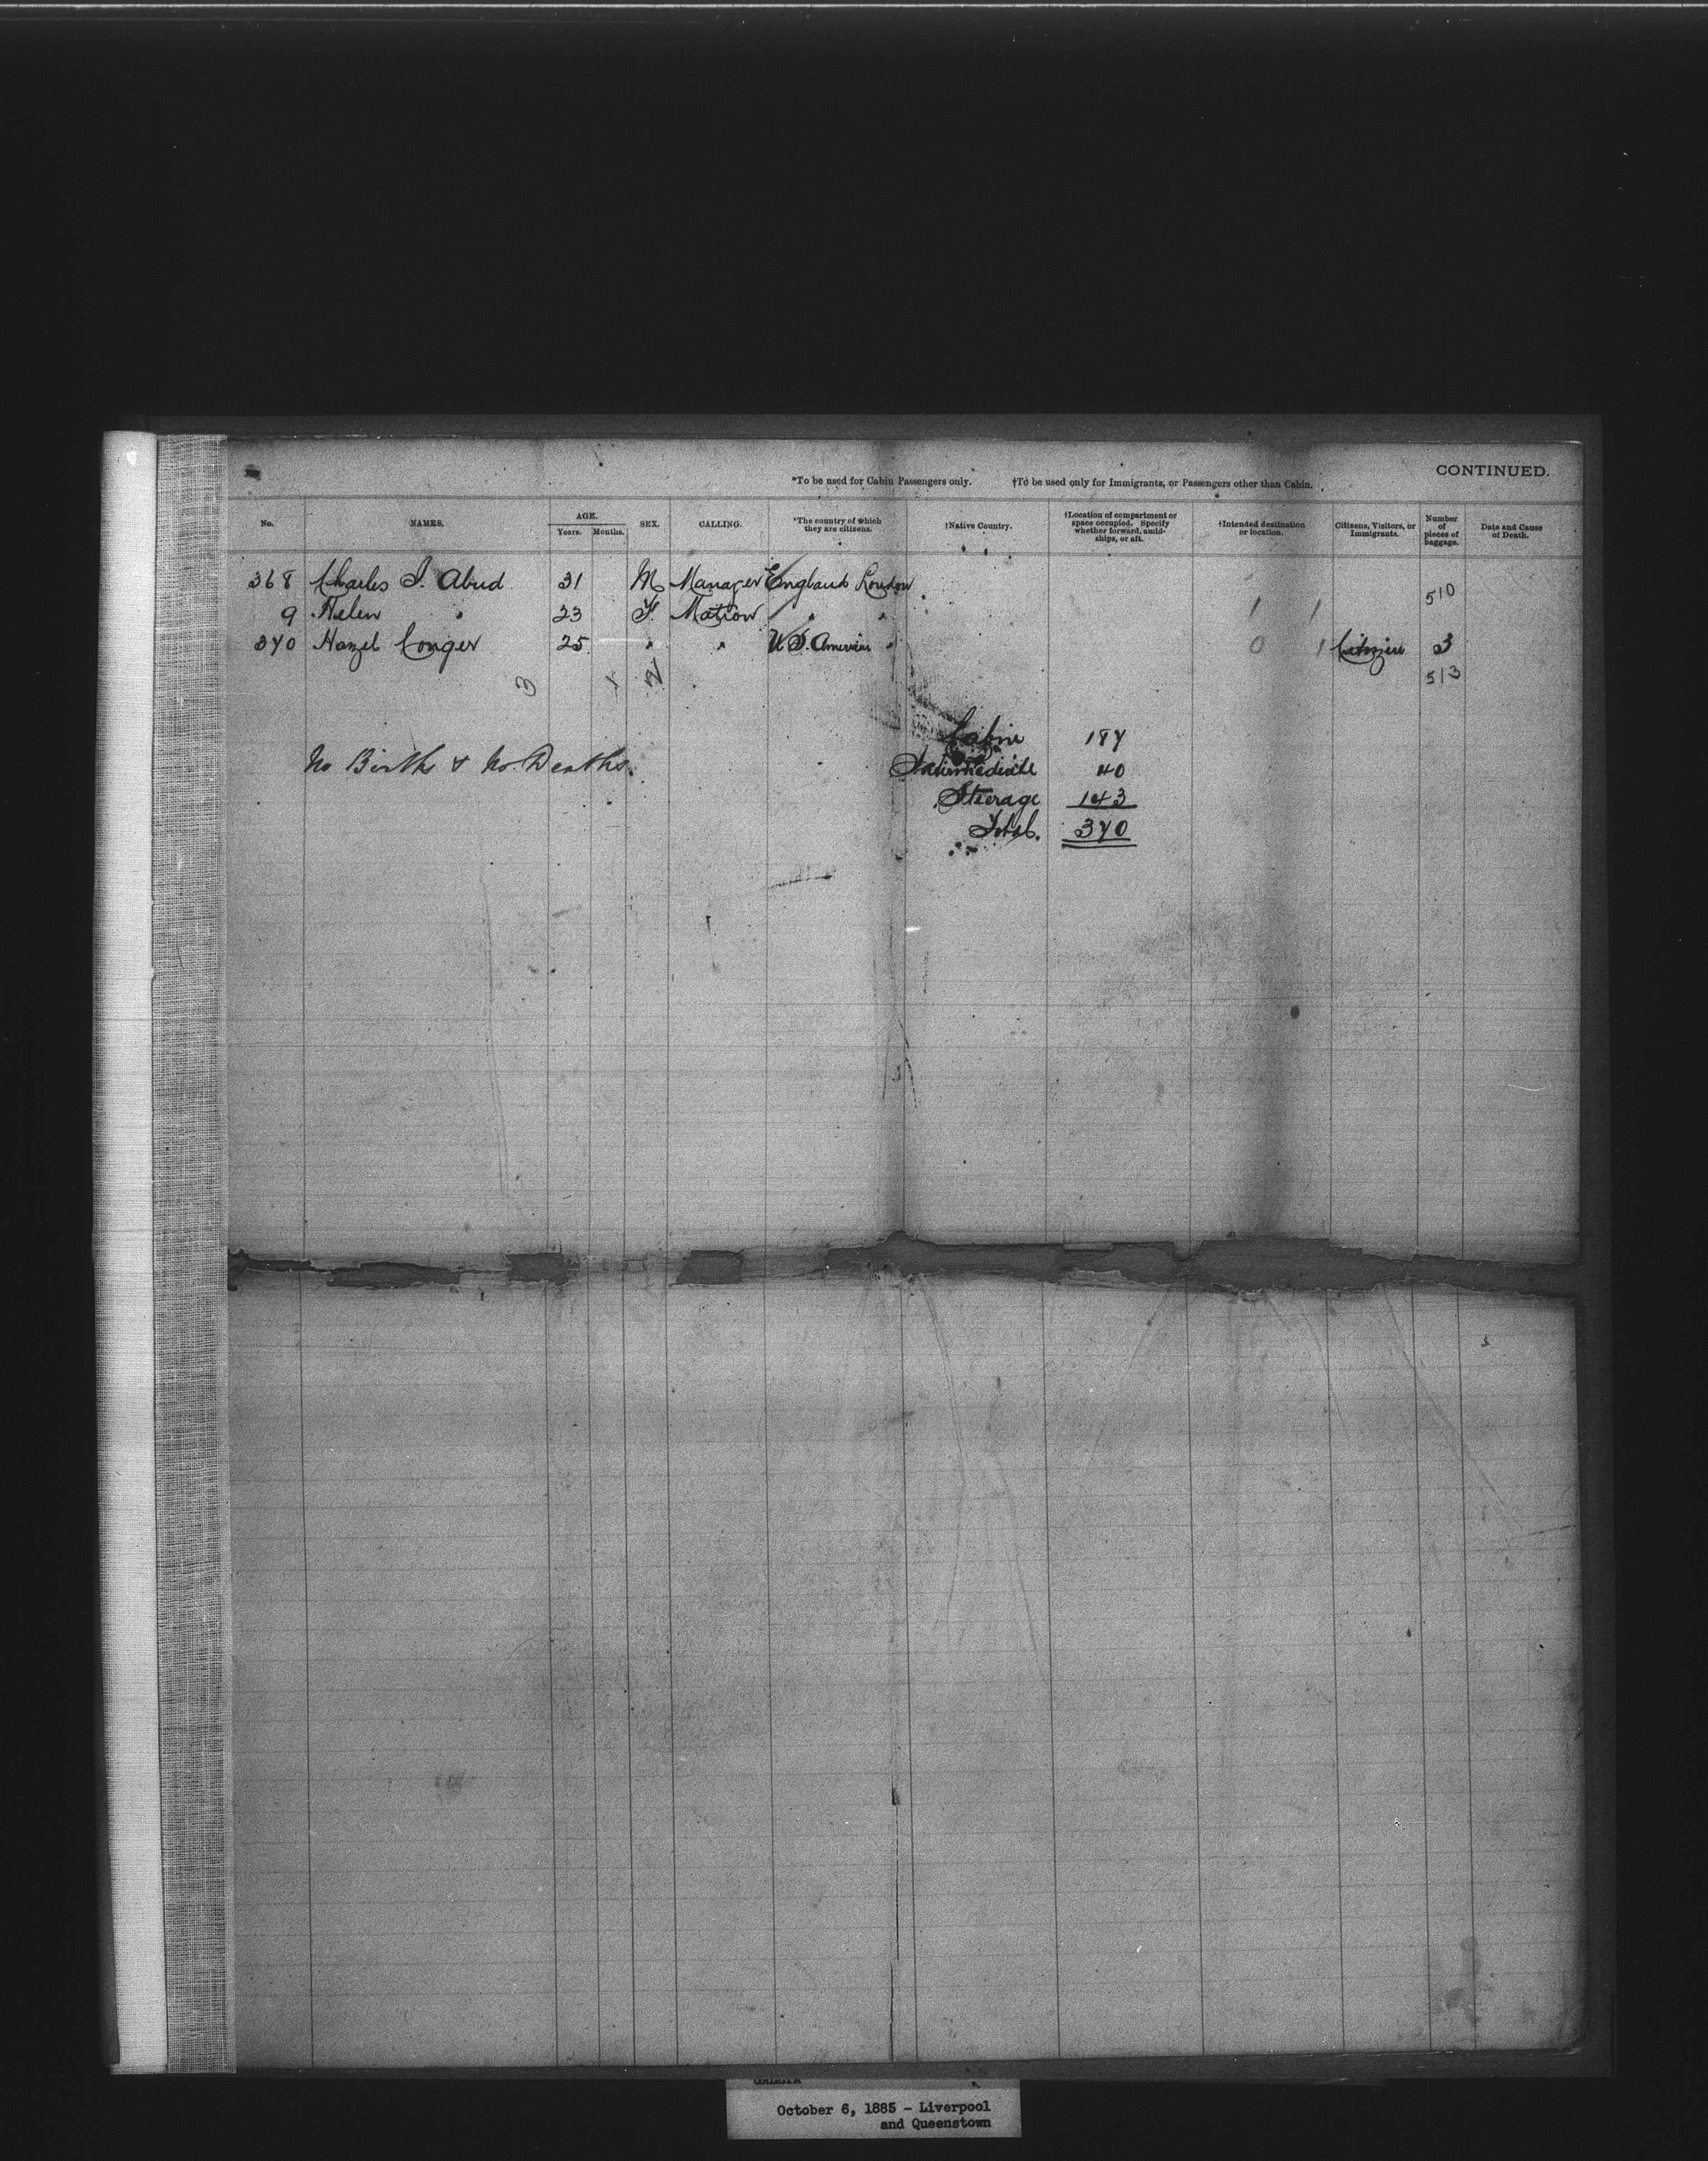 CONTINUED.
*To be used for Cabin Passengers only. †To be used only for Immigrants, or Passengers other than Cabin.
No. NAMES. AGE. Years. Months. SEX. CALLING. *The country of which they are citizens. †Native Country. †Location of compartment or space occupied. Specify whether forward, amidships, or aft. †Intended destination or location. Citizens, Visitors, or Immigrants. Number of pieces of baggage. Date and Cause of Death.
368 Charles I. Abud 31 M Manager England London
510
9 Helen " 23 F. Matron " " 1 1
370 Hazel Conger 25 " " U.S. America " 0 1 Citizen 3
3 1 2 513
Cabin 187
No Births & No Deaths.
Intermediate 40
Steerage 143
Total. 370
October 6, 1885 - Liverpool
and Queenstown